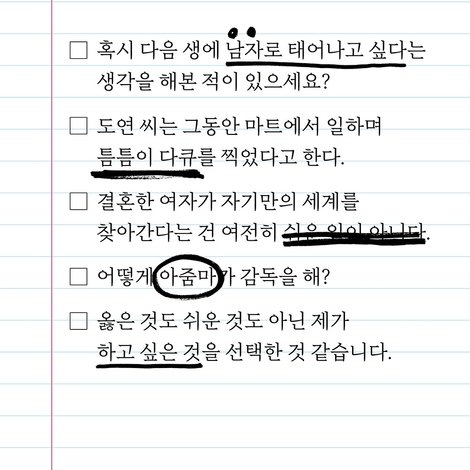 혹시 다음 생에 남자로 태어나고 싶다는
생각을 해본 적이 있으세요?
도연 씨는 그동안 마트에서 일하며
틈틈이 다큐를 찍었다고 한다.
결혼한 여자가 자기만의 세계를
찾아간다는 건 여전히 쉬운 일이 아니다.
어떻게 아줌마가 감독을 해?
옳은 것도 쉬운 것도 아닌 제가
하고 싶은 것을 선택한 것 같습니다.